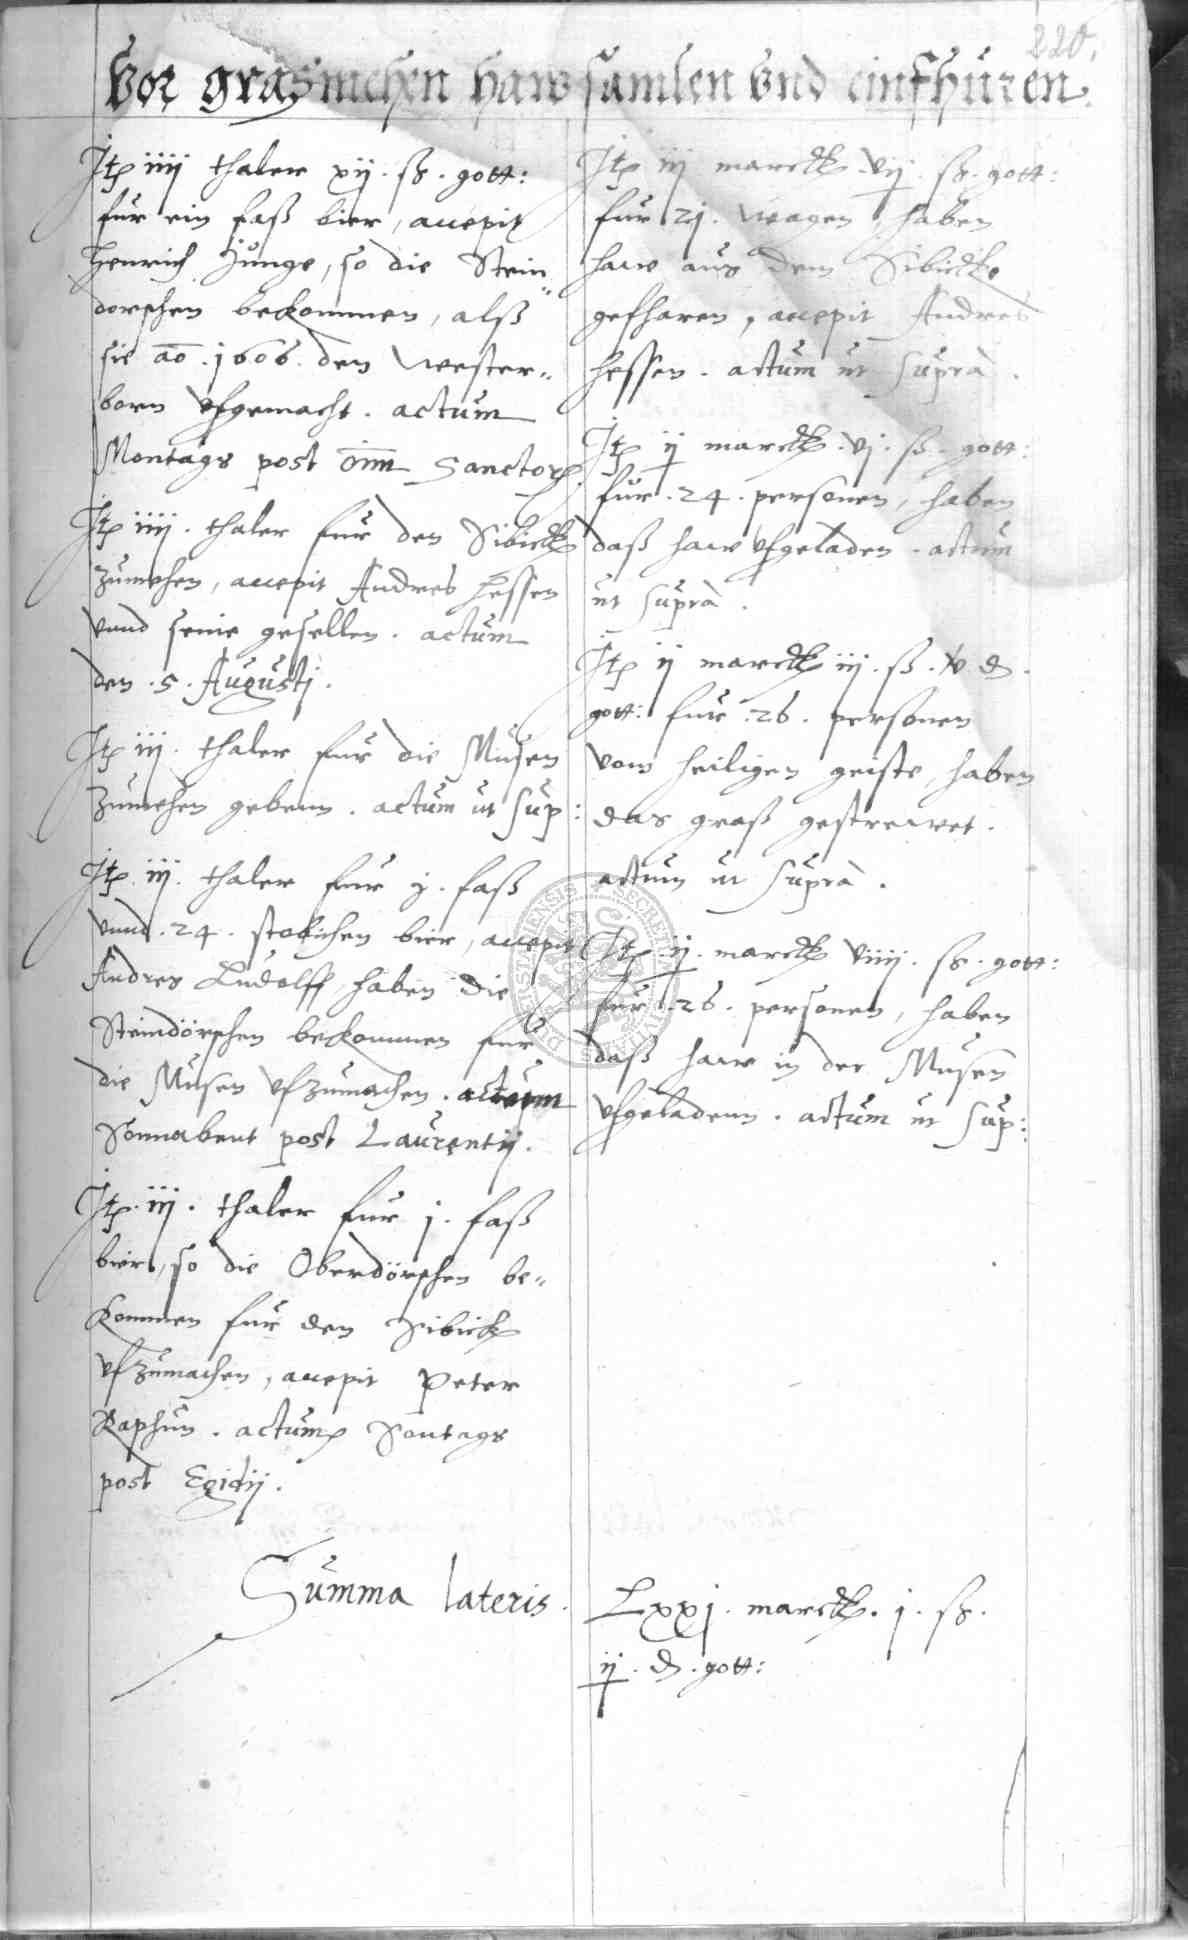 220.
Vor grasmehen haw samlen vnd einfhuren.
Itp iiij thaler xij. ß. gott:
fur ein faß bier, accepit
Henrich Junge, so die Stein„
dorschen bekommen, alß
sie ao. 1606. den Wester„
born vfgemacht. actum
Montags post oim Sanctorp.
Itp iiij. thaler fur den Sibick
zumehen, accepit Andres Hessen
vnnd seine gesellen. actum
den .5. Augustj.
Itp iij. thaler fur die Musen
zumehen gebenn. actum ut sup:
Itp. iij. thaler fur j. faß
vnnd .24. stobichen bier, accepit
Andres Ludolff, haben die
Steindörschen bekommen fur
die Musen vfzumachen. actum
Sonnabent post Laurentij.
Itp. iij. thaler fur j. faß
bier, so die Oberdörschen be„
kommen fur den Sibick
vfzumachen, accepit Peter
Raphun. actum Sontags
post Egidij.
Itp iij marck vij. ß. gott:
fur 21. Wagen, haben
haw aus dem Sibicke
gefharen, accepit Andres
Hessen. actum ut supra.
Itp ij marck. vj. ß. gott:
fur .24. personen, haben
daß haw vfgeladen. actum
ut supra.
Itp ij marck iij. ß. v. d.
gott: fur .26. personen
vom heiligen geiste, haben
das graß gestrewet.
actum ut supra.
Itp. ij. marck viiij. ß. gott:
fur .26. personen, haben
daß haw in der Musen
vfgeladenn. actum ut sup:
Summa lateris. Lxxj. marck. j. ß.
ij. d. gott: